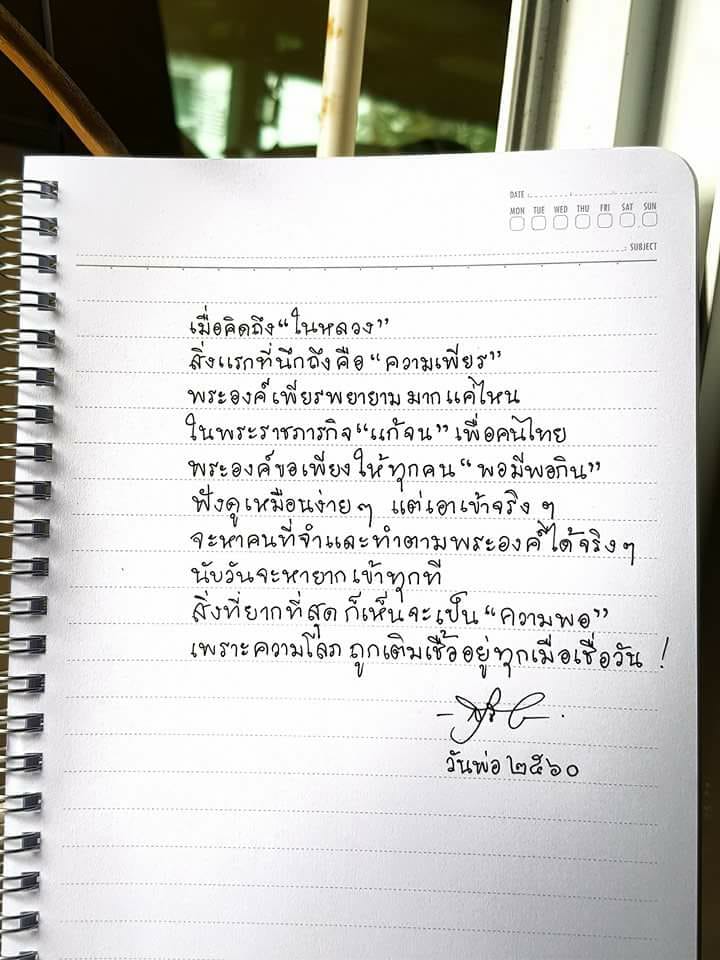 DATE
MON TUE WED THU FRI SAT SUN
SUBJECT
เมื่อคิดถึง "ในหลวง"
สิ่งแรกที่นึกถึงคือ "ความเพียร"
พระองค์เพียรพยายาม มากแค่ไหน
ในพระราชภารกิจ "แก้จน" เพื่อคนไทย
พระองค์ขอเพียงให้ทุกคน "พอมีพอกิน"
ฟังดูเหมือนง่าย ๆ แต่เอาเข้าจริง ๆ
จะหาคนที่จำและทำตามพระองค์ได้จริง ๆ
นับวันจะหายากเข้าทุกที
สิ่งที่ยากที่สุด ก็เห็นจะเป็น "ความพอ"
เพราะความโลภ ถูกเติมเชื้ออยู่ทุกเมื่อเชื่อวัน !
วันพ่อ ๒๕๖๐